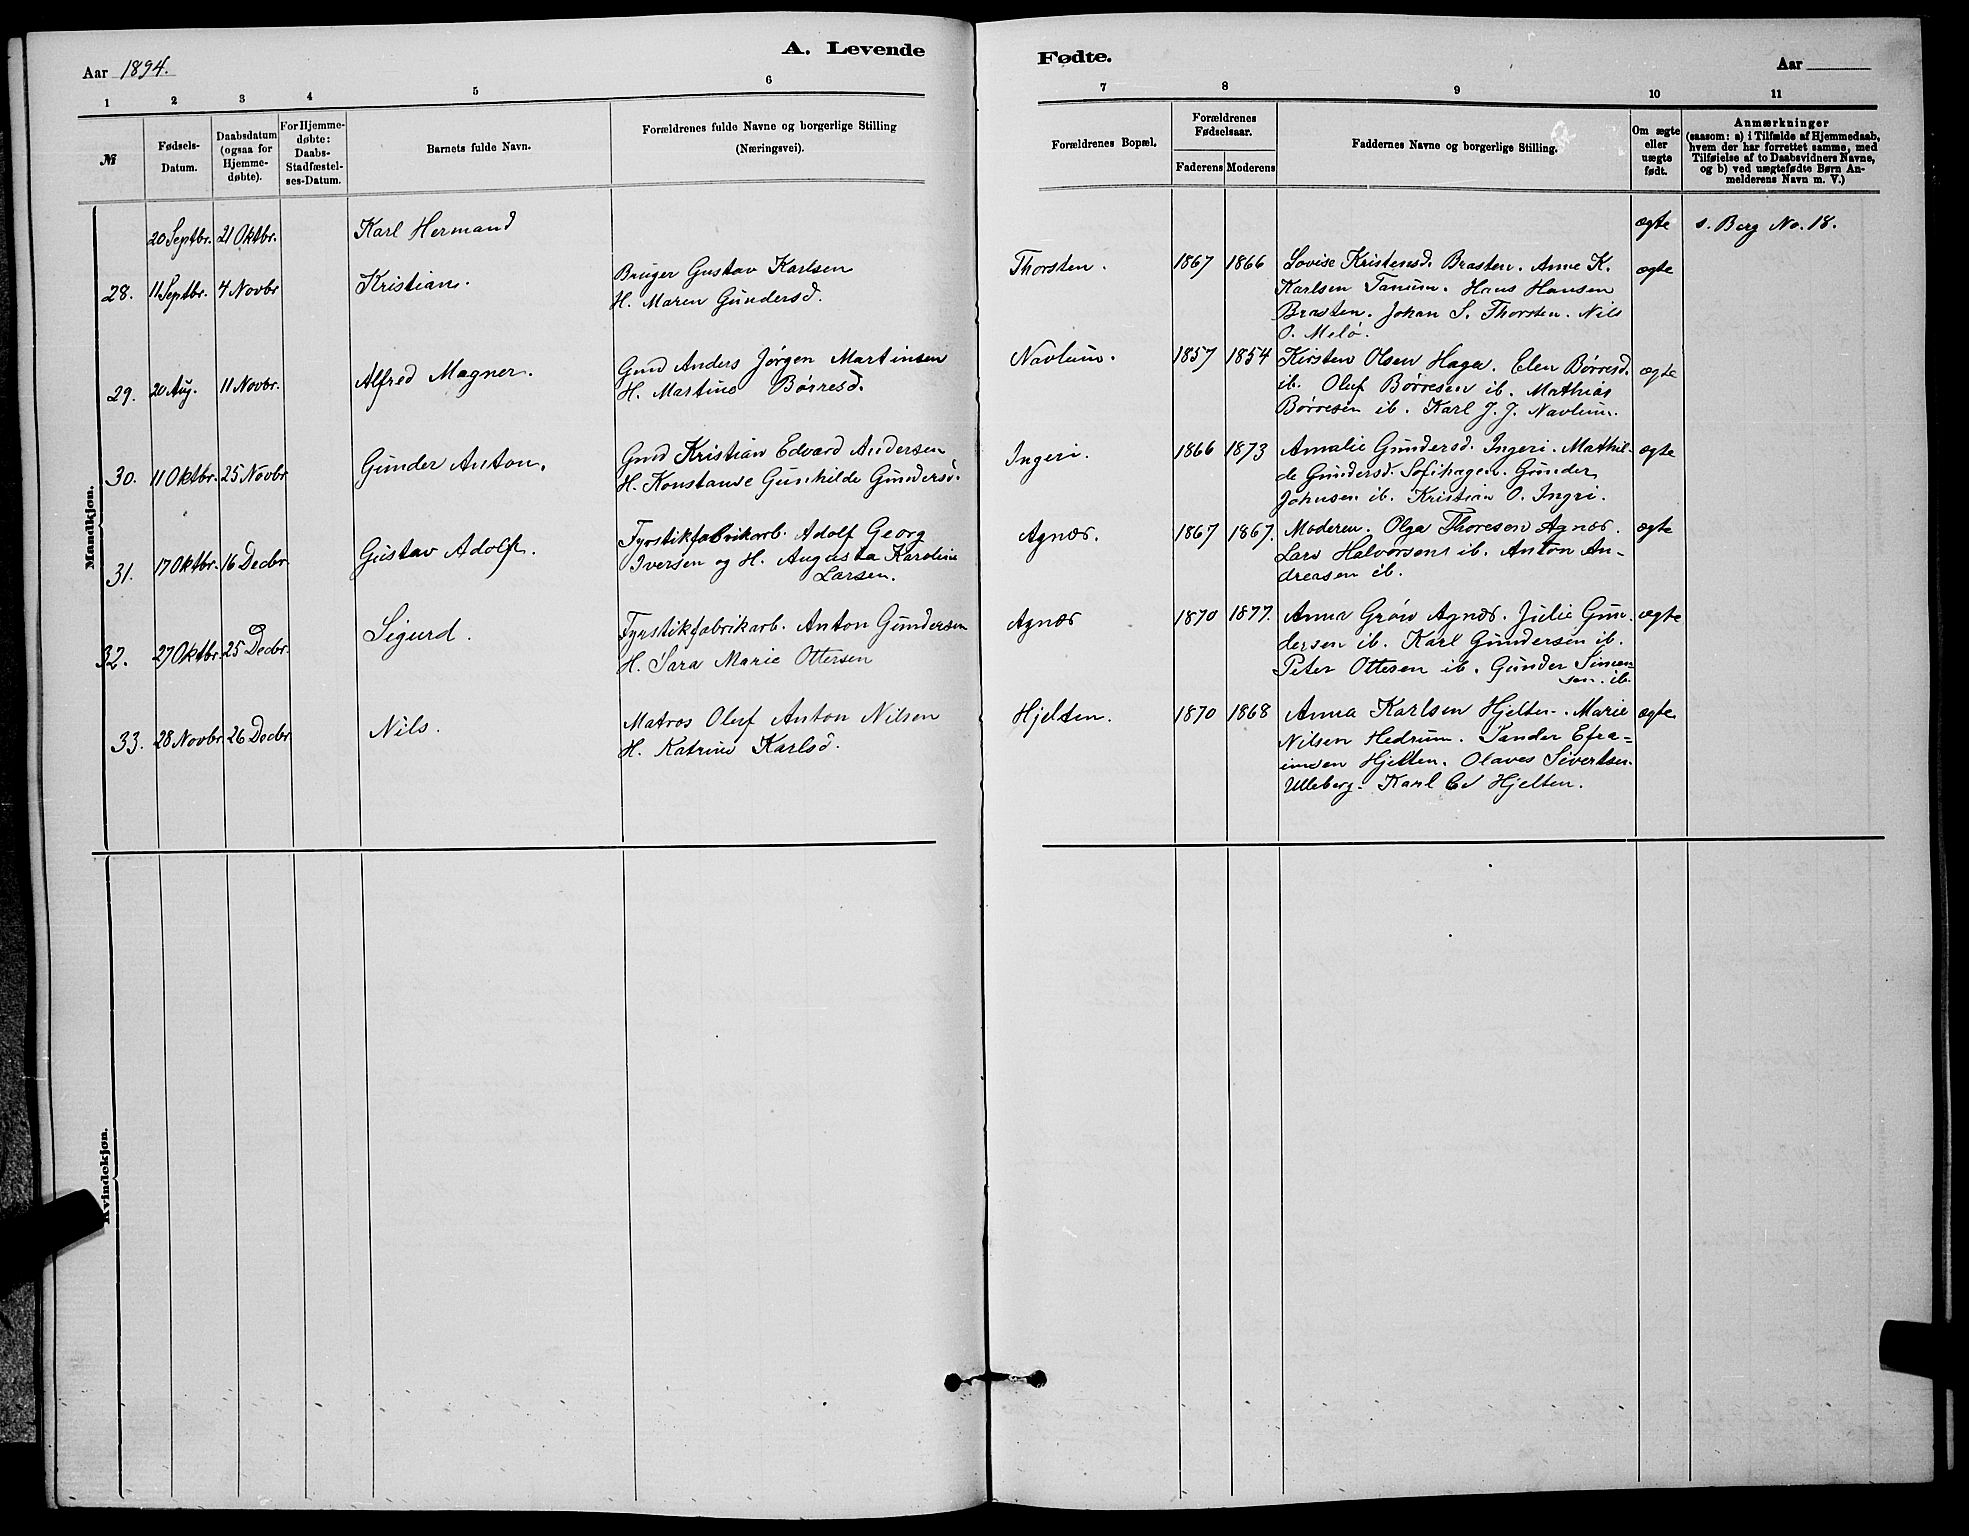 A. Levende
Aar 1894.
1 2 3 4 5 6
№
Fødsels-
Datum.
Daabsdatum
(ogsaa for
Hjemme-
døbte).
For Hjemme-
døbte:
Daabs-
Stadfæstel-
ses-Datum.
Barnets fulde Navn.
Forældrenes fulde Navne og borgerlige Stilling
(Næringsvei).
Mandkjøn.
20 Septbr. 21 Oktbr. Karl Hermand
28. 11 Septbr. 4 Novbr Kristian.
Bruger Gustav Karlsen
H. Maren Gundersd.
29. 20 Aug. 11 Novbr. Alfred Magner.
Gmd Anders Jørgen Martinsen
H. Martine Børresd.
30. 11 Oktbr. 25 Novbr Gunder Anton.
Gmd Kristian Edvard Andersen
H. Konstanse Gunhilde Gundersd.
31. 17 Oktbr. 16 Decbr. Gustav Adolf.
Fyrstikfabrikarb. Adolf Georg
Iversen og H. Augusta Karoline
Larsen.
32. 27 Oktbr. 25 Decbr. Sigurd.
Fyrstikfabrikarb. Anton Gundersen
H. Sara Marie Ottersen
33. 28 Novbr 26 Decbr Nils.
Matros Oluf Anton Nilsen
H. Katrine Karlsd.
Kvindekjøn.
Fødte.
Aar
7 8 9 10 11
Forældrenes Bopæl.
Forældrenes
Fødselsaar.
Faderens Moderens
Faddernes Navne og borgerlige Stilling.
Om ægte
eller
uægte
født.
Anmærkninger
(saasom: a) i Tilfælde af Hjemmedaab,
hvem der har forrettet samme, med
Tilføielse af to Daabsvidners Navne,
og b) ved uægtefødte Børn An-
melderens Navn m. V.)
ægte s. Berg No. 18.
Thorsten. 1867 1866 Lovise Kristensd. Brasten. Anne K. ægte
Karlsen Tanum. Hans Hansen
Brasten. Johan S. Thorsten. Nils
O. Melø.
Navlum. 1857 1854 Kirsten Olsen Haga. Elen Børresd. ægte
ib. Oluf Børresen ib. Mathias
Børresen ib. Karl J. J. Navlum.
Ingeri. 1866 1873 Amalie Gundersd. Ingeri. Mathil- ægte
de Gundersd. Sofihagen. Gunder
Johnsen ib. Kristian O. Ingri.
Agnæs. 1867 1867. Moderen. Olga Thoresen Agnæs. ægte
Lars Halvorsen ib. Anton An-
dreasen ib.
Agnæs 1870 1877. Anna Grøn Agnæs. Julie Gun- ægte
dersen ib. Karl Gundersen ib.
Peter Ottesen ib. Gunder Simen-
sen ib.
Hjelten. 1870 1868 Anna Karlsen Hjelten. Marie ægte
Nilsen Hedrum. Sander Efra-
imsen Hjelten. Olaves Sivertsen
Ulleberg. Karl Ed Hjelten.